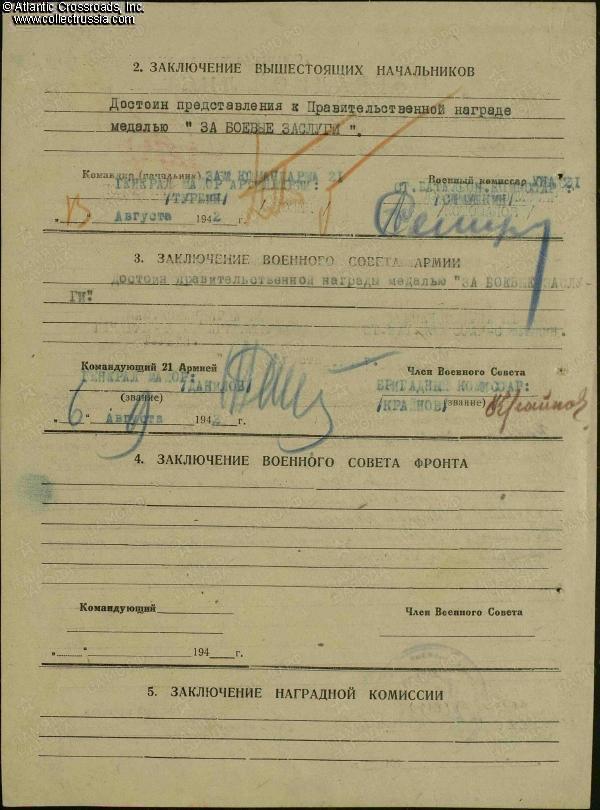 © Atlantic Crossroads, Inc.
www.collectrussia.com
2. ЗАКЛЮЧЕНИЕ ВЫШЕСТОЯЩИХ НАЧАЛЬНИКОВ
Достоин представления к Правительственной награде
медалью " ЗА БОЕВЫЕ ЗАСЛУГИ ".
Командир (начальник) ЗАМ.КОМАНДАРМА 21 Военный комиссар УНА 21
ГЕНЕРАЛ МАЙОР АРТИЛЛЕРИИ: СТ.БАТАЛЬОН.КОМИССАР :
/ТУРБИН/
" " Августа 1942
3. ЗАКЛЮЧЕНИЕ ВОЕННОГО СОВЕТА АРМИИ
Достоин правительственной награды медалью "ЗА БОЕВЫЕ ЗАСЛУ-
ГИ".
Командующий 21 Армией Член Военного Совета
ГЕНЕРАЛ МАЙОР: /ДАНИЛОВ/ БРИГАДНЫЙ КОМИССАР:
(звание) /КРАЙНОВ/ (звание) Крайнов
" " Августа 1942 г.
4. ЗАКЛЮЧЕНИЕ ВОЕННОГО СОВЕТА ФРОНТА
Командующий Член Военного Совета
" " 194 г.
5. ЗАКЛЮЧЕНИЕ НАГРАДНОЙ КОМИССИИ